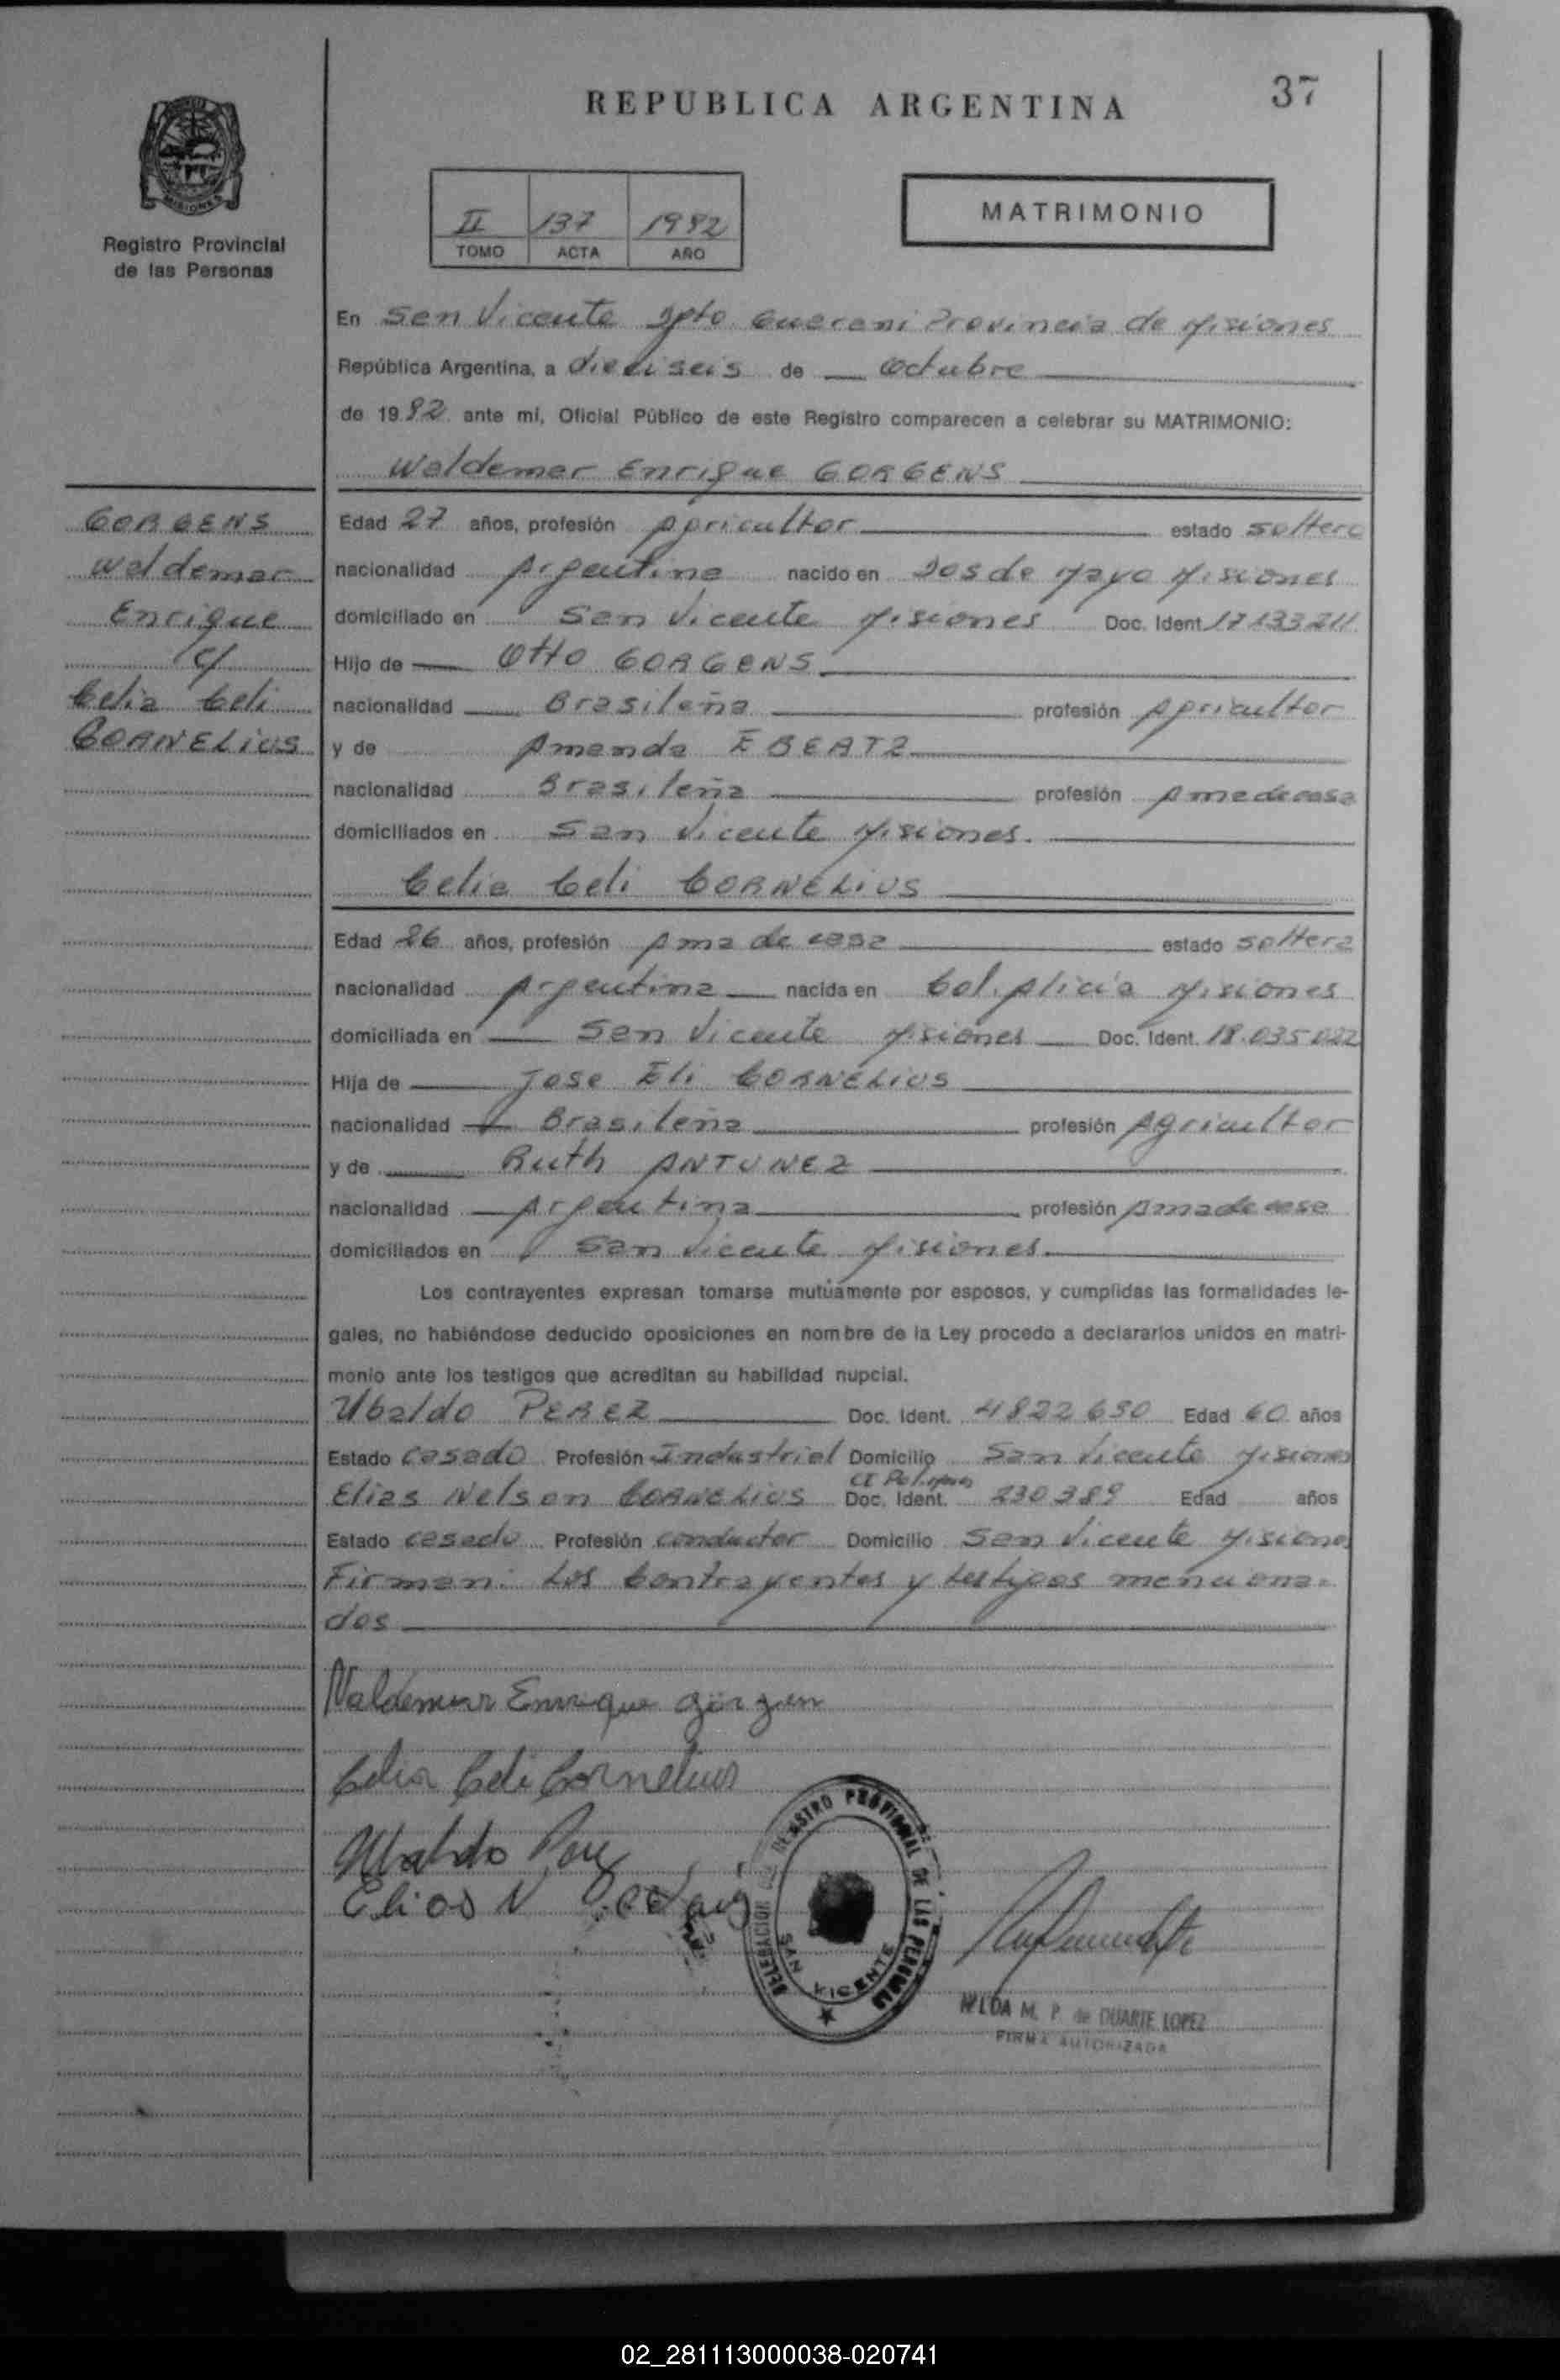 REPUBLICA ARGENTINA
37
MISIONES
Registro Provincial
de las Personas
II 137 1982
TOMO ACTA AÑO
MATRIMONIO
En San Vicente Dpto Guarani Provincia de Misiones
República Argentina, a dieciseis de octubre
de 1982 ante mí, Oficial Público de este Registro comparecen a celebrar su MATRIMONIO:
Waldemar Enrique GORGENS
GORGENS
Waldemar
Enrique
c/
Celia Celi
CORNELIUS
Edad 27 años, profesión Agricultor estado soltero
nacionalidad Argentina nacido en Dos de Mayo Misiones
domiciliado en San Vicente Misiones Doc. Ident. 17.133.211
Hijo de Otto GORGENS
nacionalidad Brasileña profesión Agricultor
y de Amanda EBERTZ
nacionalidad Brasileña profesión Ama de casa
domiciliados en San Vicente Misiones.
Celia Celi CORNELIUS
Edad 26 años, profesión Ama de casa estado soltera
nacionalidad Argentina nacida en Col. Alicia Misiones
domiciliada en San Vicente Misiones Doc. Ident. 18.035.022
Hija de Jose Eli CORNELIUS
nacionalidad Brasileña profesión Agricultor
y de Ruth ANTUNEZ
nacionalidad Argentina profesión Ama de casa
domiciliados en San Vicente Misiones.
Los contrayentes expresan tomarse mutuamente por esposos, y cumplidas las formalidades le-
gales, no habiéndose deducido oposiciones en nombre de la Ley procedo a declararlos unidos en matri-
monio ante los testigos que acreditan su habilidad nupcial.
Ubaldo PEREZ Doc. Ident. 4822650 Edad 60 años
Estado casado Profesión Industrial Domicilio San Vicente Misiones
CI Pol. Mnes
Elias Nelson CORNELIUS Doc. Ident. 230389 Edad años
Estado casado Profesión conductor Domicilio San Vicente Misiones
Firman: Los Contrayentes y testigos menciona-
dos
Waldemar Enrique Görgen
Celia Celi Cornelius
Ubaldo Perez
Elias N
DELEGACION DEL REGISTRO PROVINCIAL DE LAS PERSONAS
SAN VICENTE
NILDA M. P. de DUARTE LOPEZ
FIRMA AUTORIZADA
02_281113000038-020741